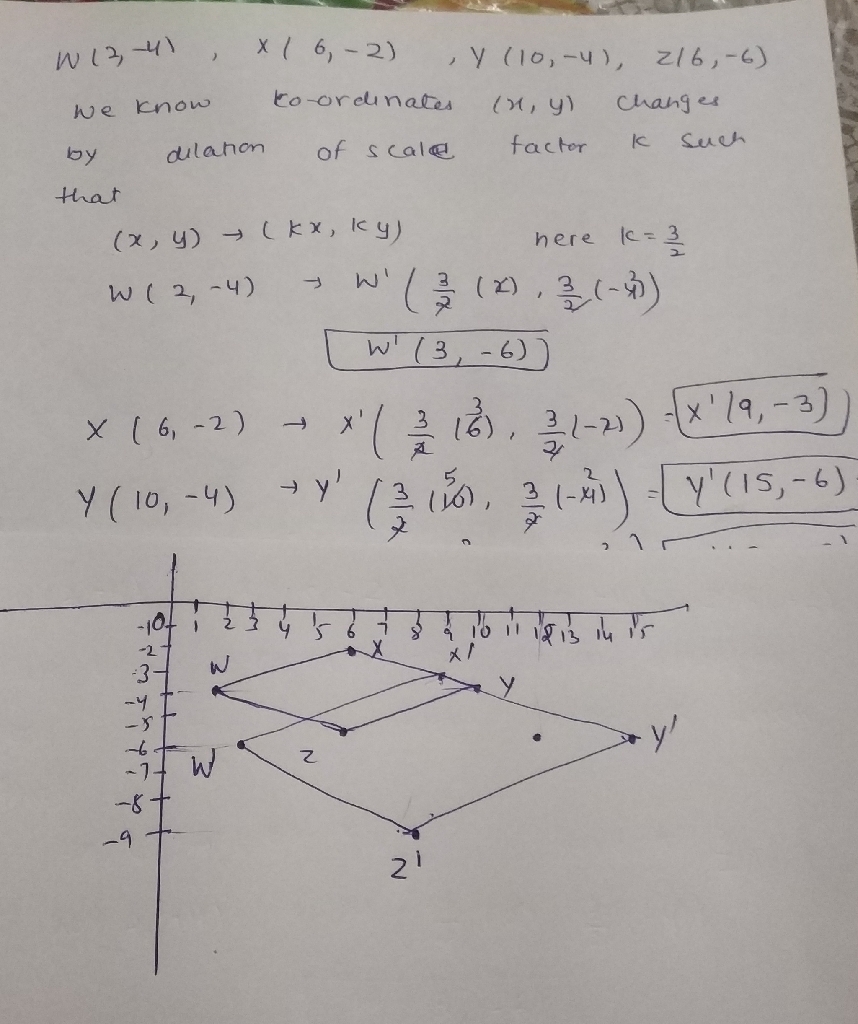 W(2,-4) , X( 6, -2) , Y (10, -4), Z(6, -6)
we know ko-ordinates (x, y) changes
by dilation of scale factor k such
that
(x, y) → (kx, ky) here k = 3/2
W ( 2, -4) → W' ( 3/2 (2) , 3/2 (-4) )
W' (3, -6)
X ( 6, -2) → X' ( 3/2 (6) , 3/2 (-2) ) = X' (9, -3)
Y ( 10, -4) → Y' ( 3/2 (10), 3/2 (-4) ) = Y' (15, -6)
-1 0 1 2 3 4 5 6 7 8 9 10 11 12 13 14 15
-2 X X'
-3 W
-4 Y
-5
-6 Z Y'
-7 W
-8
-9
Z'